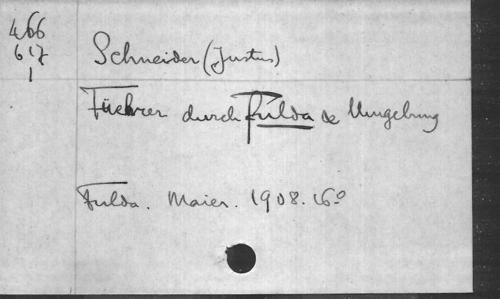 466
617
1
Schneider (Justus)
Füehrer durch Fulda & Umgebung
Fulda. Maier. 1908. 16°